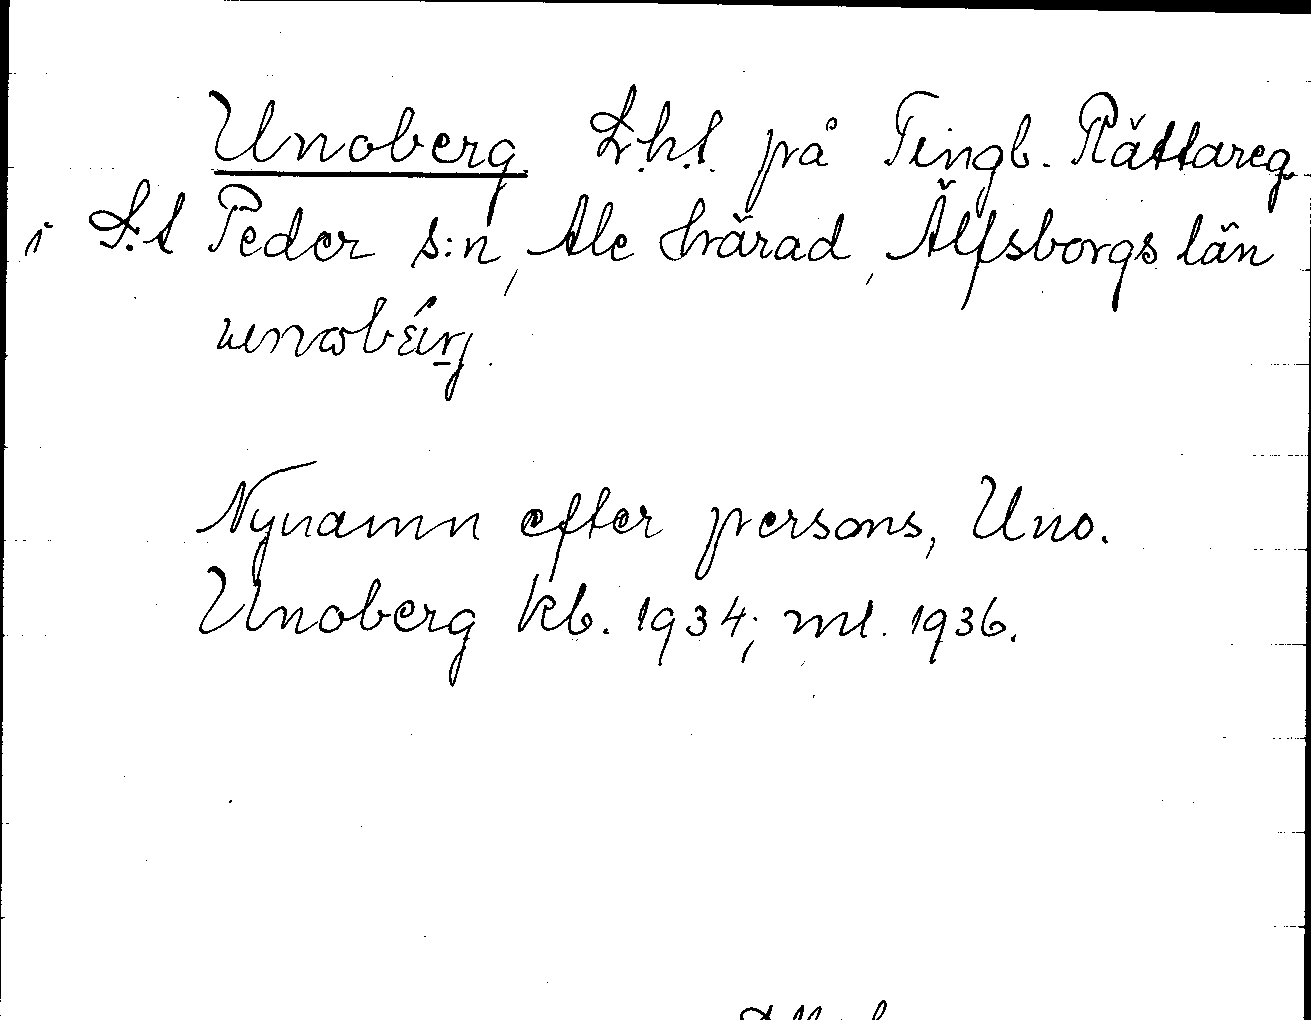 Unoberg L.h.t. på Tingb. Rättareg.
i S:t Peder s:n, Ale härad, Älfsborgs län
Nynamn efter persons, Uno.
Unoberg kb. 1934; ml. 1936.